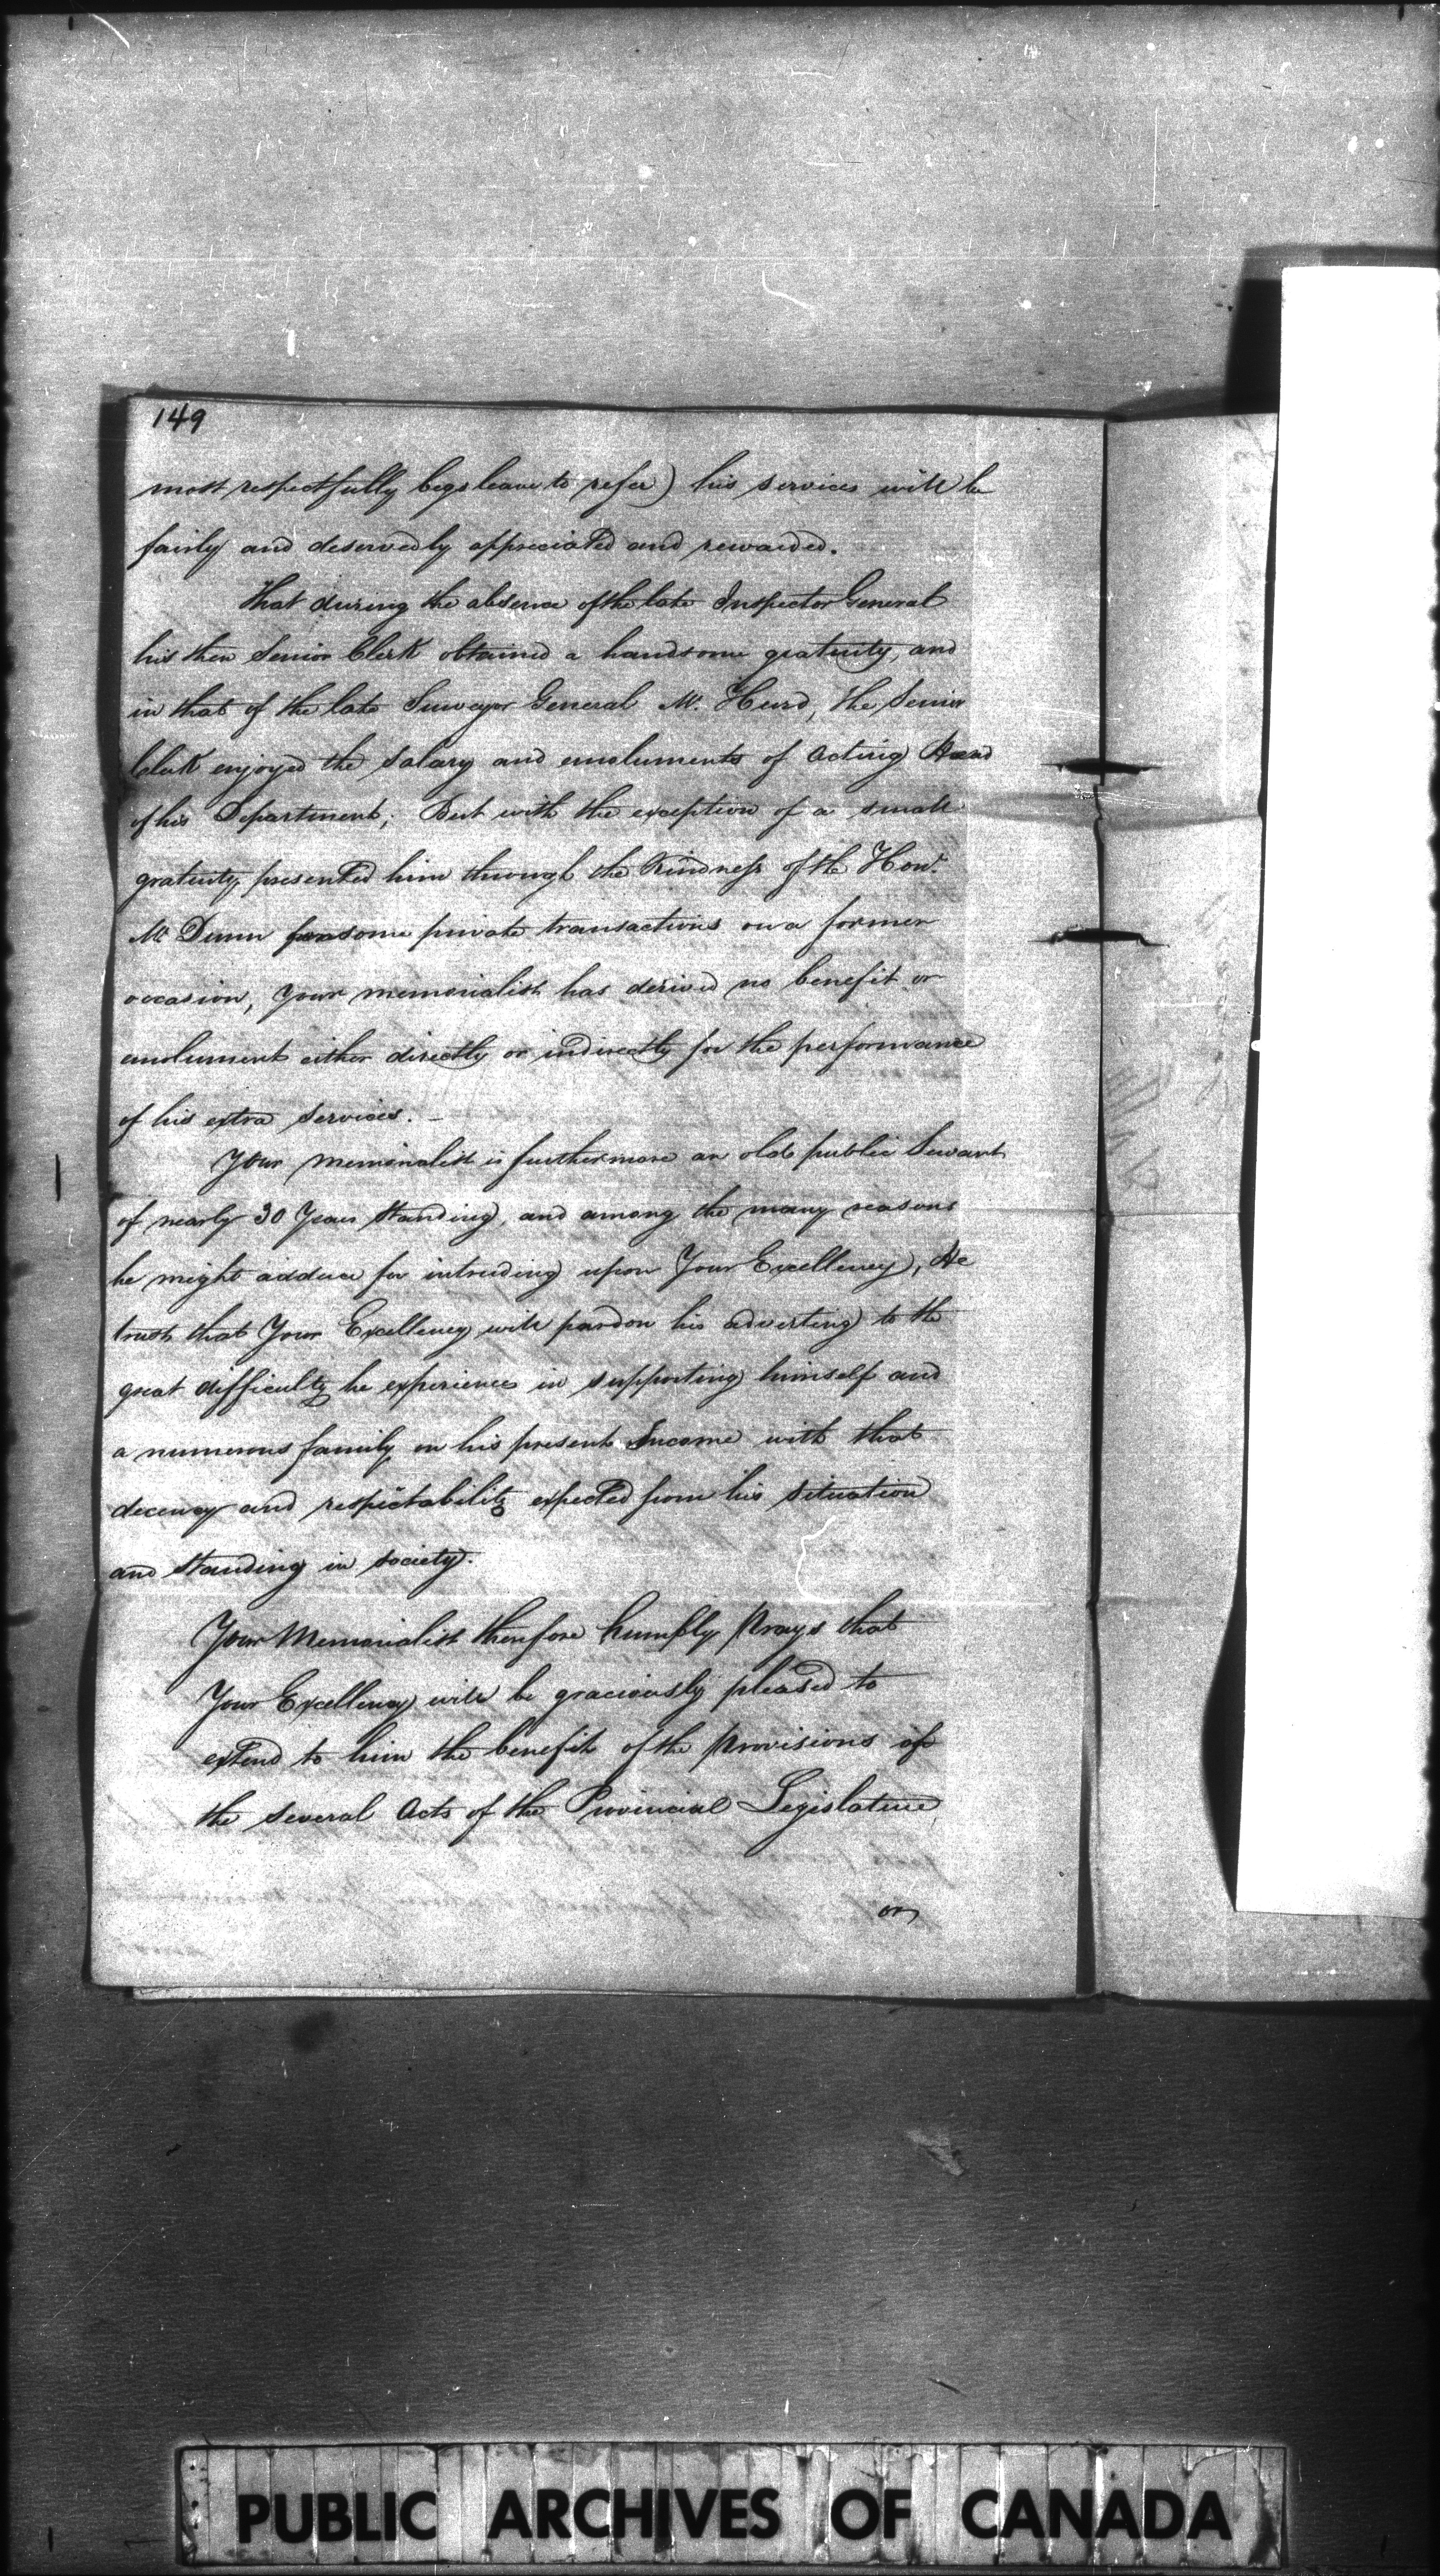 149
most respectfully begs leave to refer) his services will be
fairly and deservedly appreciated and rewarded.
That during the absence of the late Inspector General
his then Senior Clerk obtained a handsome gratuity, and
in that of the late Surveyor General Mr. Hurd, the Senior
Clerk enjoyed the salary and emoluments of acting Head
of his Department; But with the exception of a small
gratuity presented him through the Kindness of the Honl.
Mr Dunn for some private transactions on a former
occasion, Your memorialist has derived no benefit or
emolument either directly or indirectly for the performance
of his extra services. –
Your memorialist is furthermore an old public Servant
of nearly 30 Years standing, and among the many reasons
he might adduce for intruding upon Your Excellency, He
trusts that Your Excellency will pardon his adverting to the
great difficulty he experiences in supporting himself and
a numerous family on his present Income with that
decency and respectability expected from his situation
and standing in society.
Your Memorialist therefore humbly Prays that
Your Excellency will be graciously pleased to
extend to him the benefit of the Provisions of
the several Acts of the Provincial Legislature
or
PUBLIC ARCHIVES OF CANADA